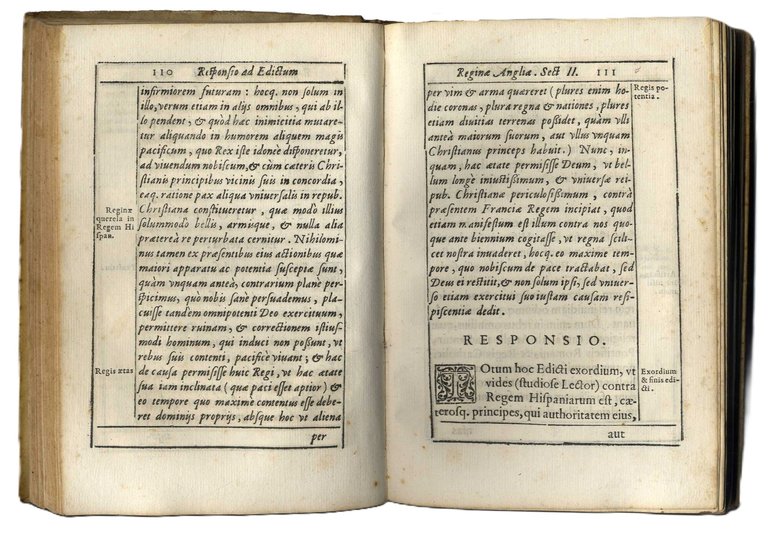 110 Responsio ad Edictum
infirmiorem futuram : hocq. non solum in
illo, verum etiam in alijs omnibus, qui ab il-
lo pendent, & quòd hac inimicitia mutare-
tur aliquando in humorem aliquem magis
pacificum, quo Rex iste idoneè disponeretur,
ad viuendum nobiscum, & cùm cæteris Chri-
stianis principibus vicinis suis in concordia,
eaq. ratione pax aliqua vniuersalis in repub.
Christiana constitueretur, quæ modò illius
solummodo bellis, armisque, & nulla alia
prætereà re perturbata cernitur. Nihilomi-
nus tamen ex præsentibus eius actionibus quæ
maiori apparatu ac potentia susceptæ sunt,
quàm vnquam anteà, contrarium planè per-
spicimus, quò nobis sanè persuademus, pla-
cuisse tandem omnipotenti Deo exercituum,
permittere ruinam, & correctionem istius-
modi hominum, qui induci non possunt, vt
rebus suis contenti, pacificè viuant; & hac
de causa permisisse huic Regi, vt hac ætate
sua iam inclinata (quæ paci esset aptior) &
eo tempore quo maxime contentus esse debe-
ret dominijs proprijs, absque hoc vt aliena
per
Reginæ
querela in
Regem Hi
span.
Regis ætas
Reginæ Angliæ. Sect II. 111
per vim & arma quæreret (plures enim ho-
die coronas, plura regna & nationes, plures
etiam diuitias terrenas possidet, quàm vlli
anteà maiorum suorum, aut vllus vnquam
Christianus princeps habuit.) Nunc, in-
quam, hac ætate permisisse Deum, vt bel-
lum longè iniustissimum, & vniuersæ rei-
pub. Christianæ periculosissimum, contrà
præsentem Franciæ Regem incipiat, quod
etiam manifestum est illum contra nos quo-
que ante biennium cogitasse, vt regna scili-
cet nostra inuaderet, hocq. eo maxime tem-
pore, quo nobiscum de pace tractabat, sed
Deus ei restitit, & non solum ipsi, sed vniuer-
so etiam exercitui suo iustam causam resi-
piscentiæ dedit.
RESPONSIO.
TOtum hoc Edicti exordium, vt
vides (studiose Lector) contra
Regem Hispaniarum est, cæ-
terosq. principes, qui authoritatem eius,
aut
Regis po-
tentia.
Exordium
& finis edi-
cti.